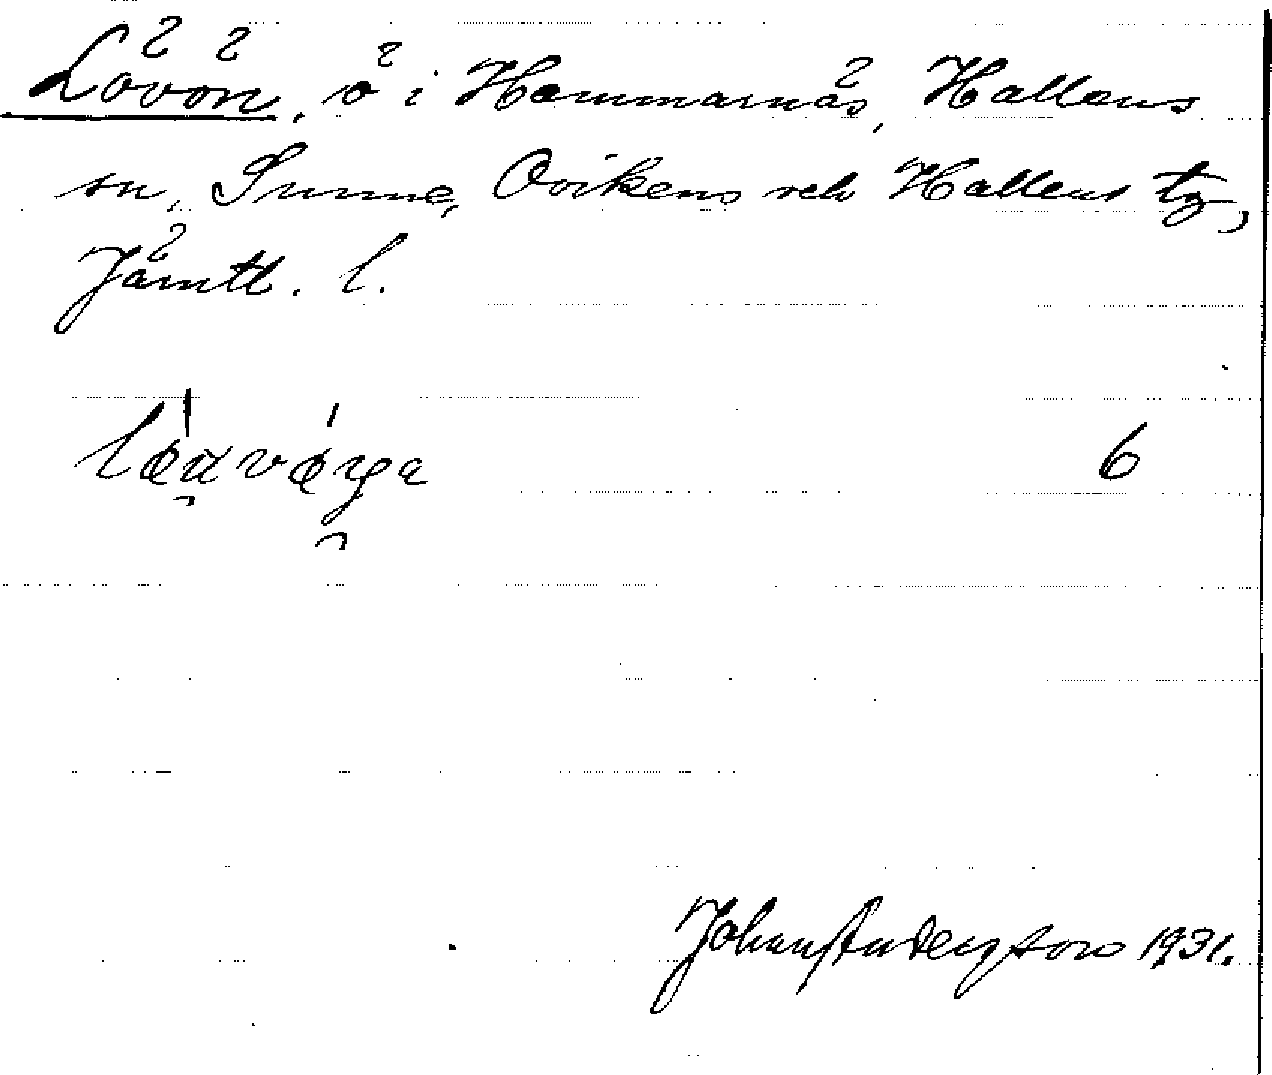 Lövön, ö i Hammarnäs, Hallens
sn, Sunne, Ovikens och Hallens tg,
Jämtl. l.
6
Johan Anderzson 1931.